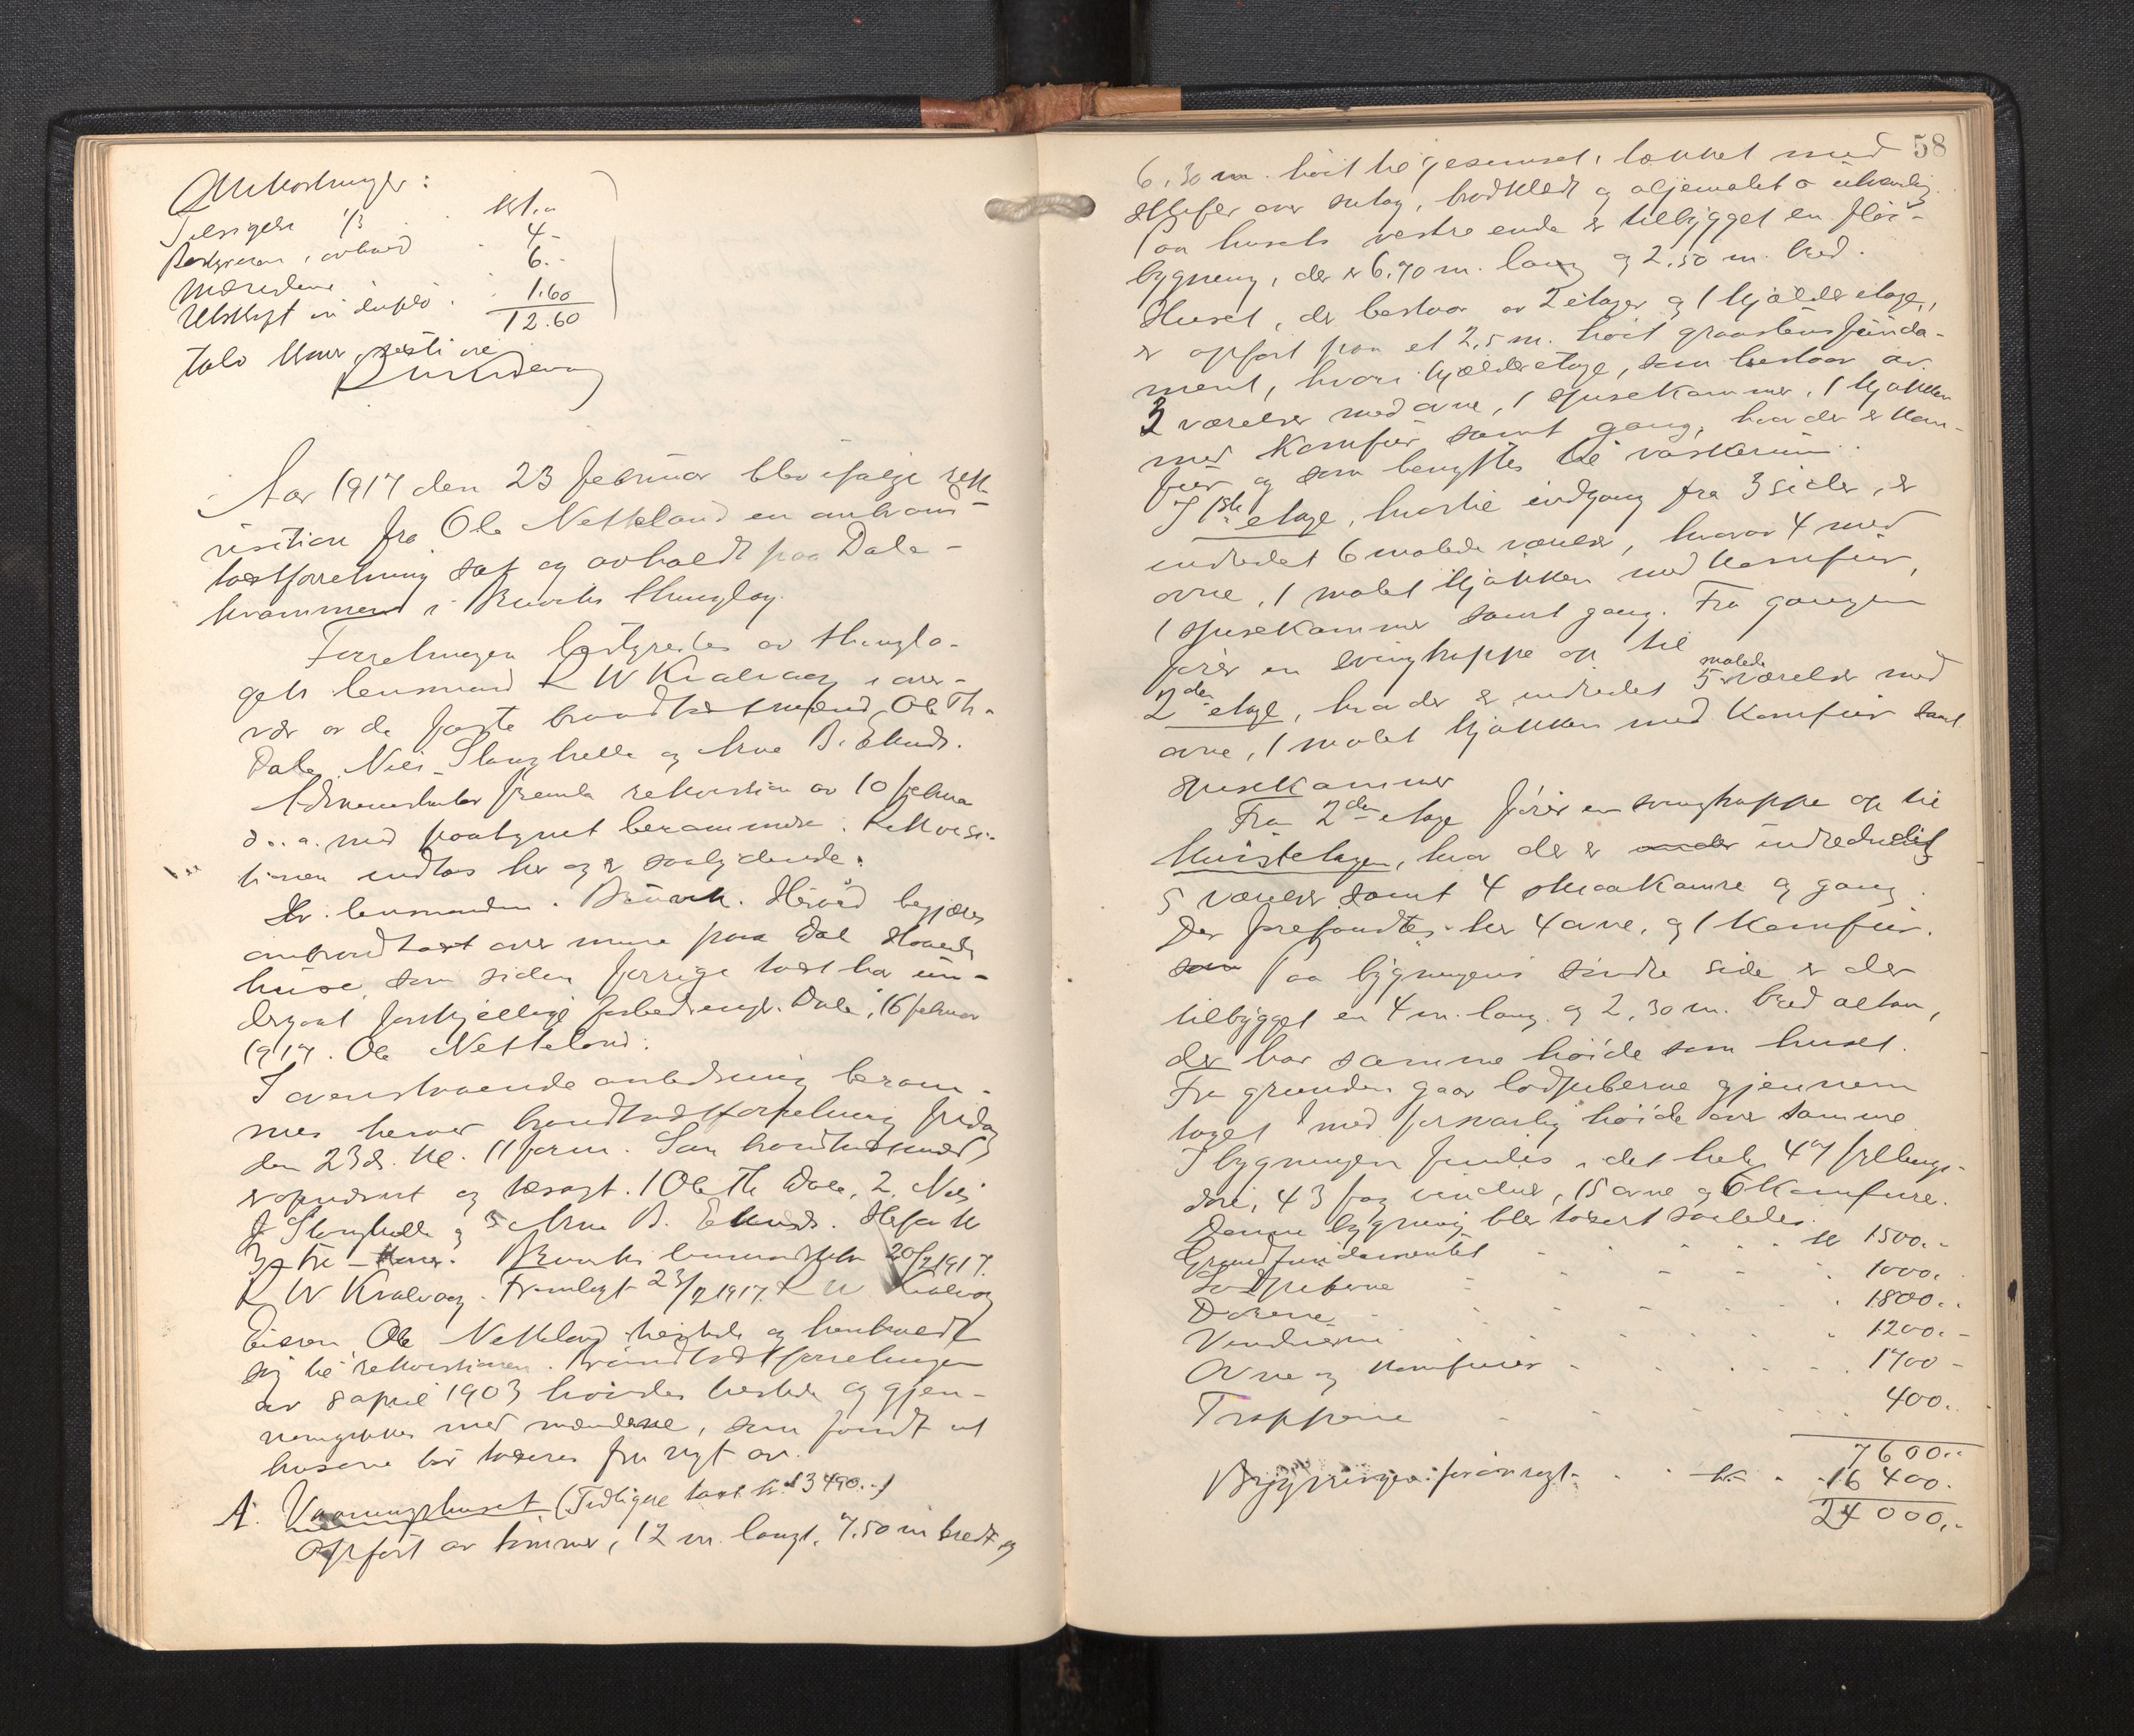 Omkostninger:
Tilsigelse 1/3 kr 1.-
Bestyrerens, avhold 4-
Mændene 6.-
Utskrift in duplo. 1.60
12.60
tolv kroner, seksti øre
Aar 1917 den 23 februar blev ifølge rek-
visition fra Ole Netteland en ombrand-
takstforretning sat og avholdt paa Dale-
kvammen i Bruviks thinglag.
Forretningen bestyredes av thingla-
gets lensmand R W Kvalvaag i over-
vær av de faste brandtakstmænd, Ole Th.
Dale, Nils Stanghelle og Arne B. Eknes.
Administrator fremla rekvisition av 10 februar
d. a. med paategnet berammelse. Rekvisi-
tionen indtas her og er saalydende:
Hr. lensmanden. Bruvik. Herved begjæres
ombrandtakst over mine paa Dale staaende
huse, som siden forrige takst har un-
dergaat forskjellige forbedringer. Dale, 16 februar
1917. Ole Netteland.
I ovenstaaende anledning beram-
mes herover brandtakstforretning fredag
den 23 ds. kl. 11 form. Som brandtakstmænd
er opnævnt og tilsagt. 1 Ole Th Dale, 2. Nils
J Stanghelle og 3 Arne B. Eknes. Hefte kr
3 - tre - kroner. Bruviks lensmandskontor 20/2 1917.
R W Kvalvaag. Fremlagt 23/2 1917. R W Kvalvaag
Eieren Ole Netteland tilstede og henholdt
sig til rekvisitionen. Brandtakstforretningen
av 8 april 1903 havdes tilstede og gjen-
nemgikkes med mændene, som fandt at
husene bør takseres fra nyt av.
A. Vaaningshuset (Tidligere takst kr. 13490.-)
Opført av tømmer, 12 m. langt, 7.50 m bredt og
58
6,30 m. høit til gesimset, tækket med
skifer over sutag, bordklædt og oljemalet utvendig.
Paa husets vestre ende er tilbygget en fløi-
bygning, der er 6.70 m. lang og 2,50 m. bred.
Huset, der bestaar av 2 etager og 1 kjælderetage,
er opført paa et 2,5 m. høit graastensfunda-
ment, hvori kjælderetage, som bestaar av
3 værelser med ovne, 1 spisekammer, 1 kjøkken
med komfur samt gang, hvor der er kom-
fur og som benyttes til vaskerum.
I 1ste etage, hvortil indgang fra 3 sider, er
indredet 6 malede værelser, hvorav 4 med
ovne, 1 malet kjøkken med komfur,
1 spisekammer samt gang. Fra gangen
fører en svingtrappe op til
2den etage, hvor der er indredet 5 malede værelser med
ovne, 1 malet kjøkken med komfur samt
spisekammer
Fra 2den etage fører en svingtrappe op til
kvistetagen, hvor der er indredet
5 værelser samt 4 smaakamre og gang.
Der forefandtes her 4 ovne, og 1 komfur.
Paa bygningens søndre side er der
tilbygget en 4 m. lang og 2,30 m. bred altan,
der har samme høide som huset.
Fra grunden gaar lodpiberne gjennem
taget med forsvarlig høide over samme
I bygningen findes i det hele 47 fyllings-
døre, 43 fag vinduer, 15 ovne og 6 komfure.
Denne bygning blev takseret saaledes.
Grundfundamentet kr 1500.-
Lodpiberne 1000.
Dørene 1800.-
Vinduerne 1200.-
Ovne og komfurer 1700-
Trapperne 400.-
7600.-
Bygningen forøvrigt kr. 16400.
24000.-